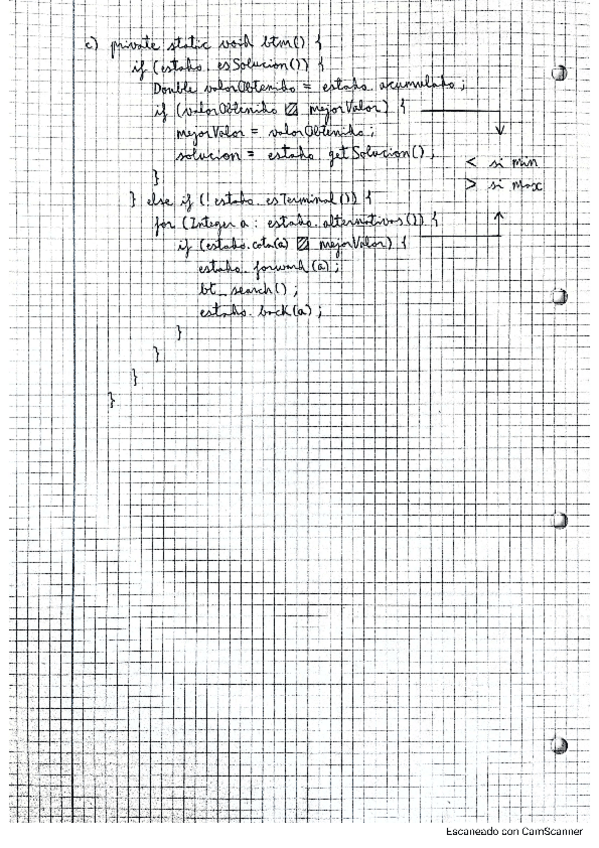 c) private static void btm() {
if (estado.esSolucion()) {
Double valorObtenido = estado.acumulado;
if (valorObtenido ▨ mejorValor) {
mejorValor = valorObtenido;
solucion = estado.getSolucion();
< si min
> si max
}
} else if (!estado.esTerminal()) {
for (Integer a : estado.alternativas()) {
if (estado.cota(a) ▨ mejorValor) {
estado.forward(a);
bt_search();
estado.back(a);
}
}
}
}
Escaneado con CamScanner